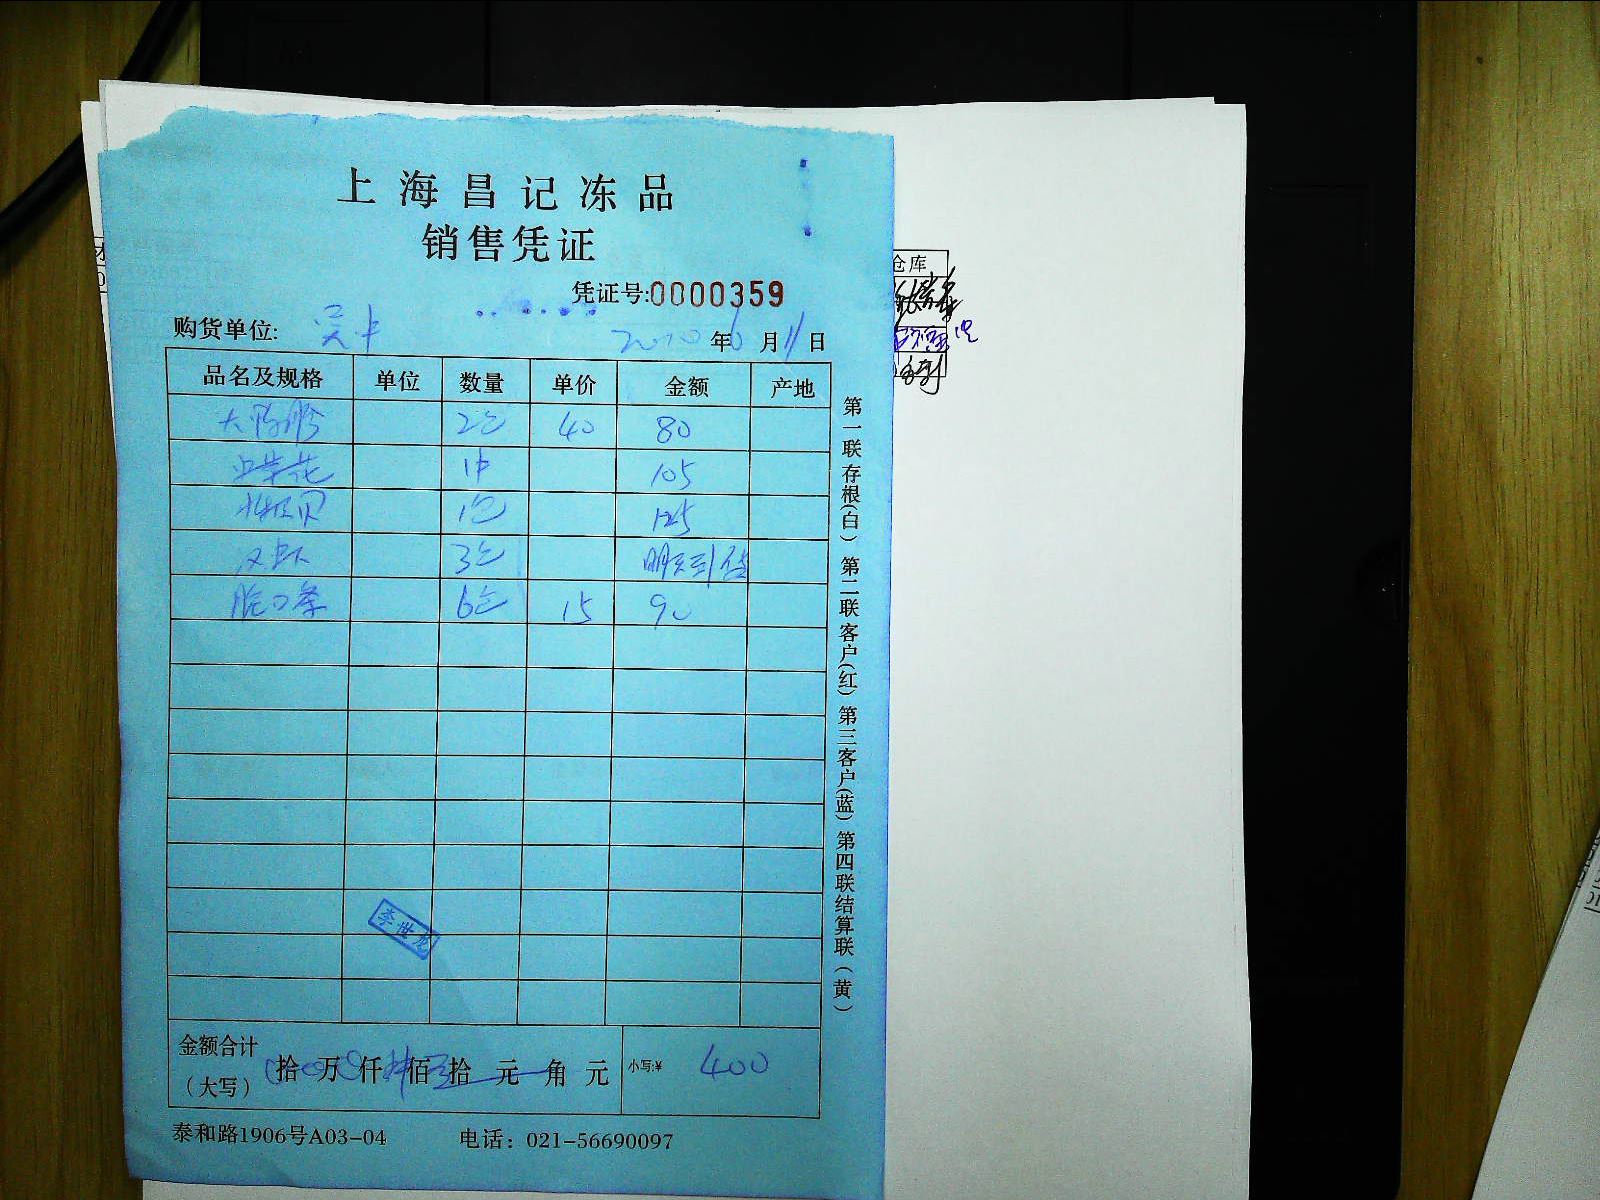 上海昌记冻品
销售凭证
凭证号:0000359
购货单位: 吴中 2020年6月11日
品名及规格 单位 数量 单价 金额 产地
2包 40 80
1件 105
北极贝 1包 125
3包 明天到货
6包 15 90
李世龙
金额合计
(大写) 拾 万 仟 佰 拾 元 角 元 小写:¥ 400
泰和路1906号A03-04 电话：021-56690097
第一联存根(白) 第二联客户(红) 第三客户(蓝) 第四联结算联(黄)
仓库